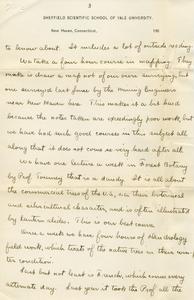 3
SHEFFIELD SCIENTIFIC SCHOOL OF YALE UNIVERSITY.
New Haven, Connecticut, 190
to know about. It includes a lot of outside reading.
We take a four hour course in mapping. They
make us draw a map not of our own surveying, but
one surveyed last June by the Mining Engineers
near New Haven here. This makes it a bit hard
because the notes taken are exceedingly poor work, but
we have had such good courses in this subject all
along that it does not come so very hard after all.
We have one lecture a week in Forest Botany
by Prof. Toumey that is a dandy. It is all about
the commercial trees of the U.S., on their botanical
and silvicultural character, and is often illustrated
by lantern slides. This is our best course.
Once a week we have four hours of Dendrology
field work, which treats of the native trees in their win-
ter condition.
Last but not least is French, which comes every
alternate day. Last year it took the Prof. all the